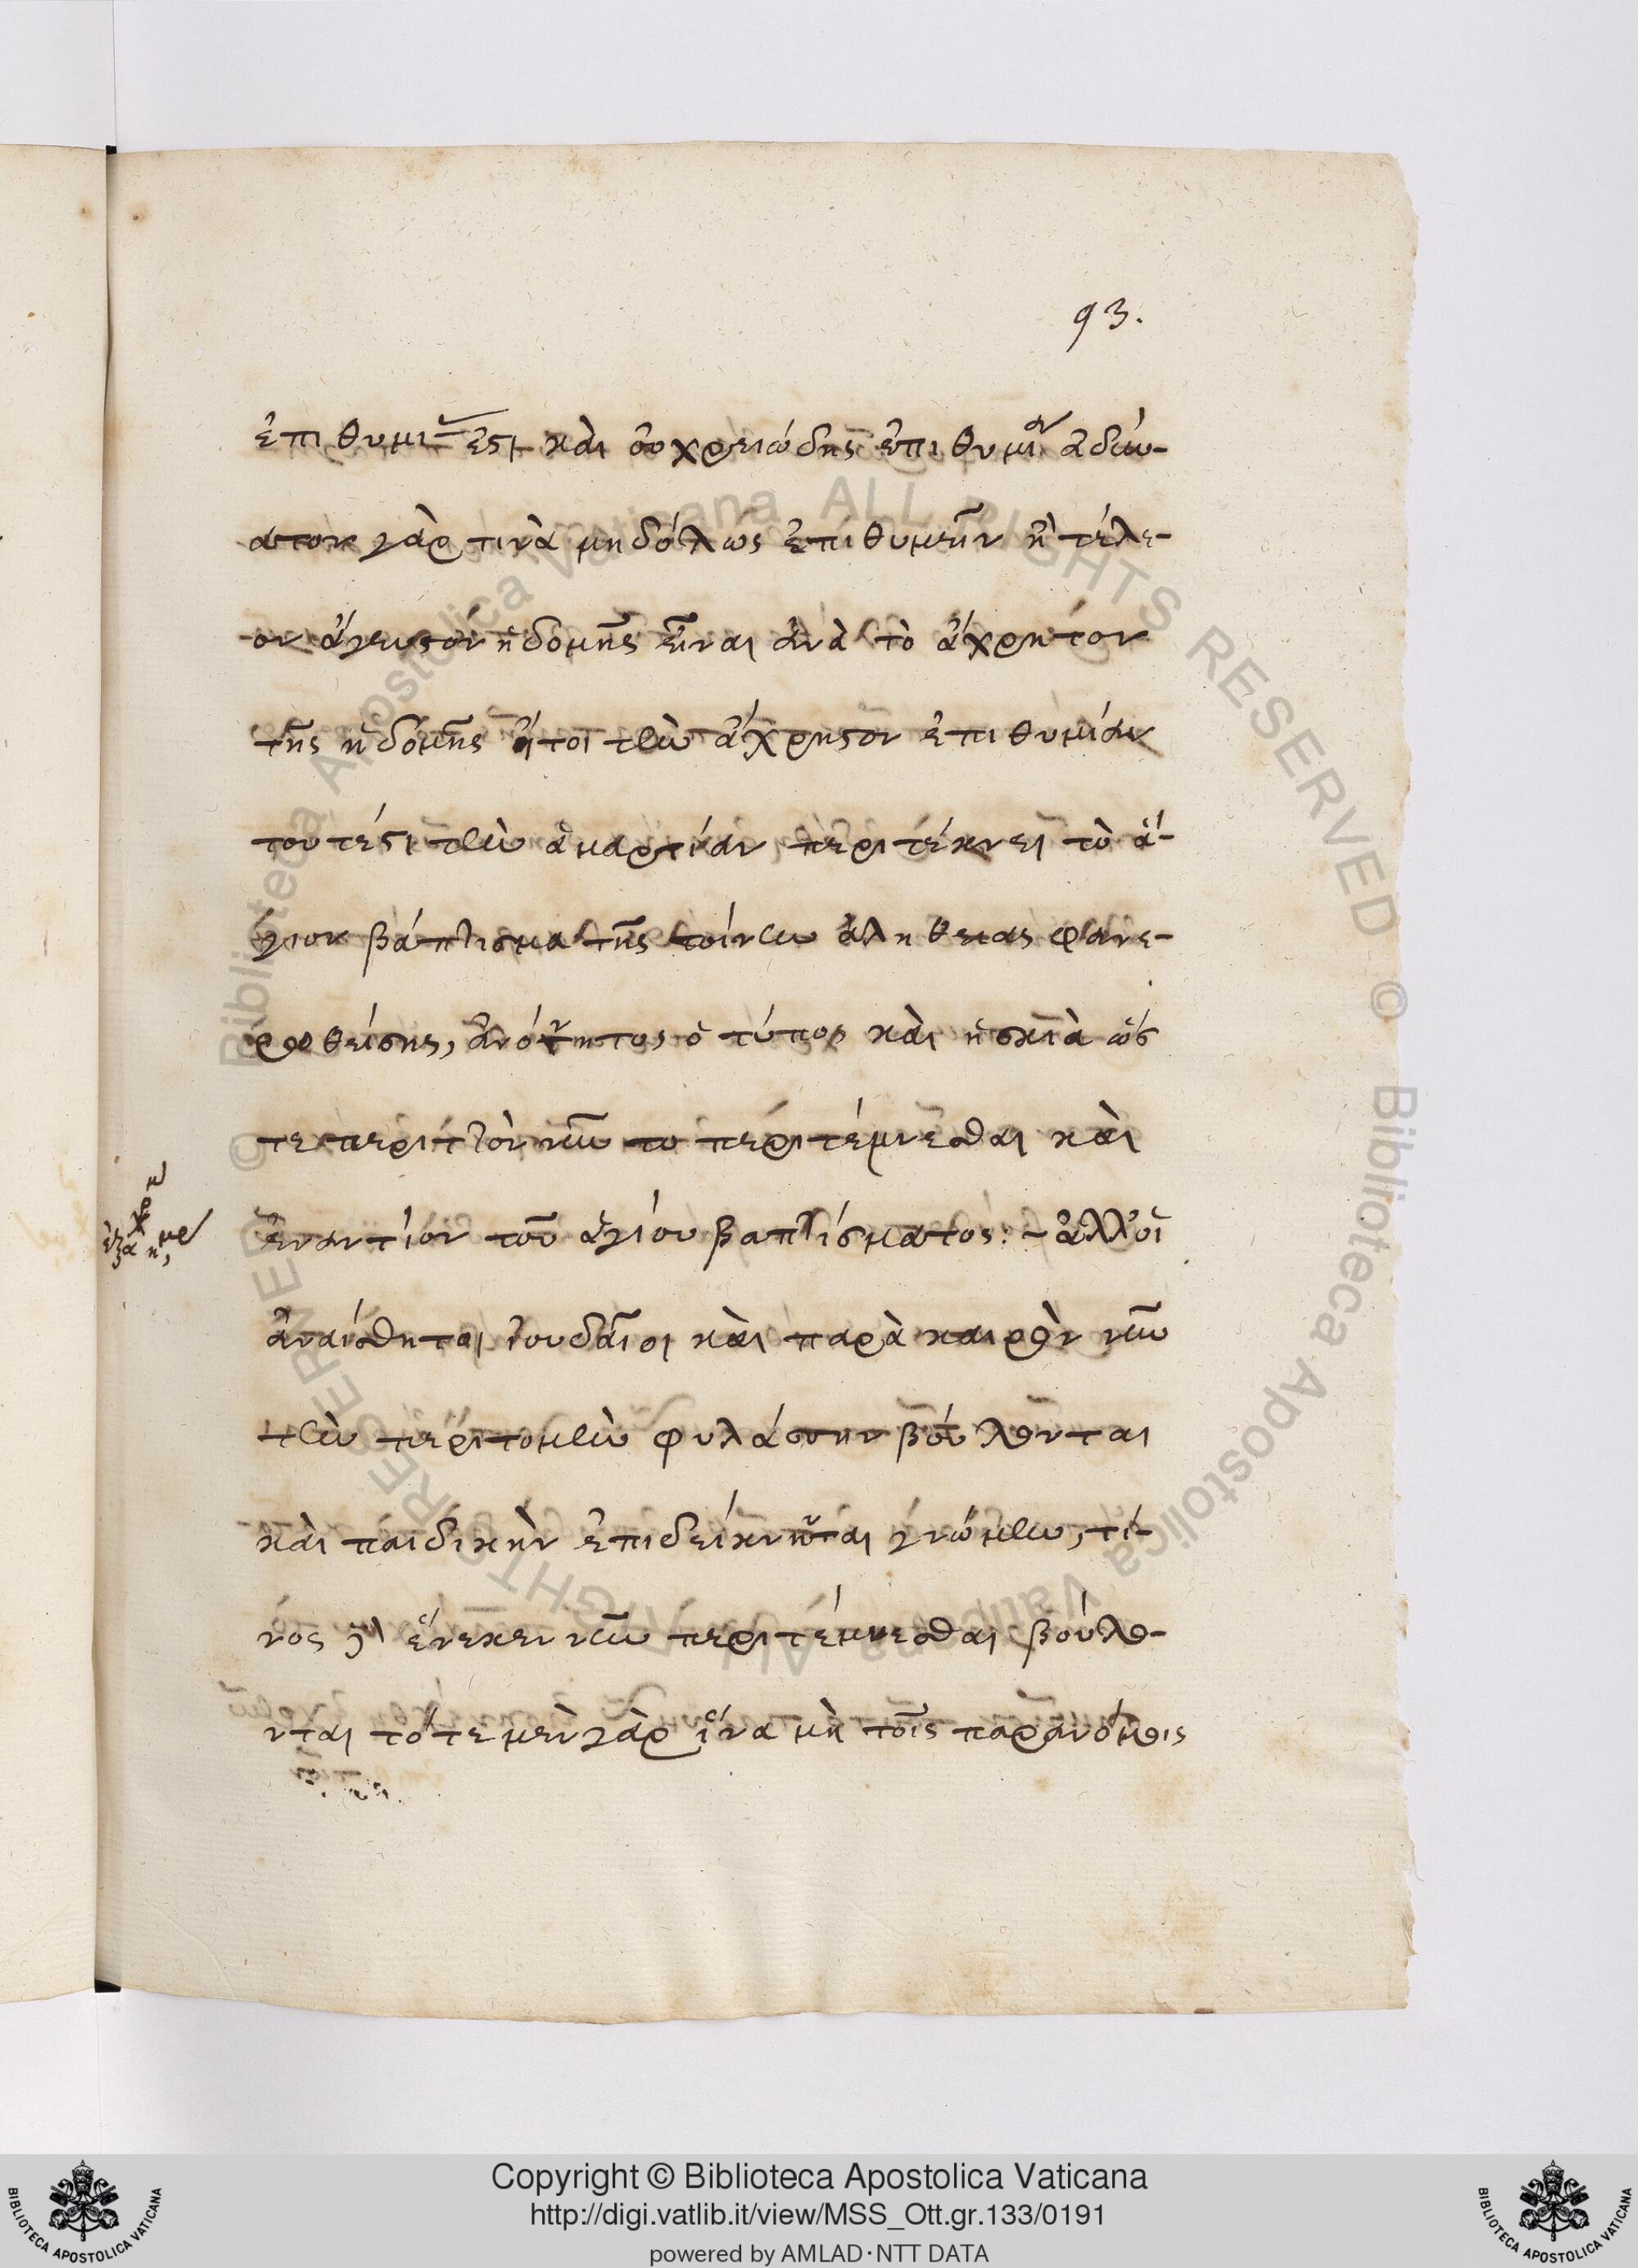 93.
ἐπιθυμία ἐστι καὶ οὐ χρειώδης ἐπιθυμία ἀδύν-
ατον γὰρ τινὰ μηδόλως ἐπιθυμεῖν ἢ τέλε-
ον ἄγευστον ἡδονῆς εἶναι ἀνὰ τὸ ἄχρηστον
τῆς ἡδονῆς ἤτοι τὴν ἄχρηστον ἐπιθυμίαν
τουτέστι τὴν ἁμαρτίαν περιτέμνει τὸ ἅ-
γιον βάπτισμα τῆς τοίνυν ἀληθείας φανε-
ρωθείσης, ἀνόνητος ὁ τύπος καὶ ἡ σκιὰ ὥσ
τε περιττὸν νῦν το περιτέμνεσθαι καὶ
ἐναντίον τοῦ ἁγίου βαπτίσματος:- ἀλλ' οἱ
ἀναίσθητοι ἰουδαῖοι καὶ παρὰ καιρὸν νῦν
τὴν περιτομὴν φυλάσσειν βούλονται
καὶ παιδικὴν ἐπιδείκνυται γνώμην, τί-
νος ἕνεκεν νῦν περιτέμνεσθαι βούλο-
νται τότε μὲν γὰρ ἵνα μὴ τοῖς παρανόμοις
Copyright © Biblioteca Apostolica Vaticana
http://digi.vatlib.it/view/MSS_Ott.gr.133/0191
powered by AMLAD·NTT DATA
BIBLIOTECA APOSTOLICA VATICANA
BIBLIOTECA APOSTOLICA VATICANA
© Biblioteca Apostolica Vaticana ALL RIGHTS RESERVED © Biblioteca Apostolica Vaticana ALL RIGHTS RESERVED